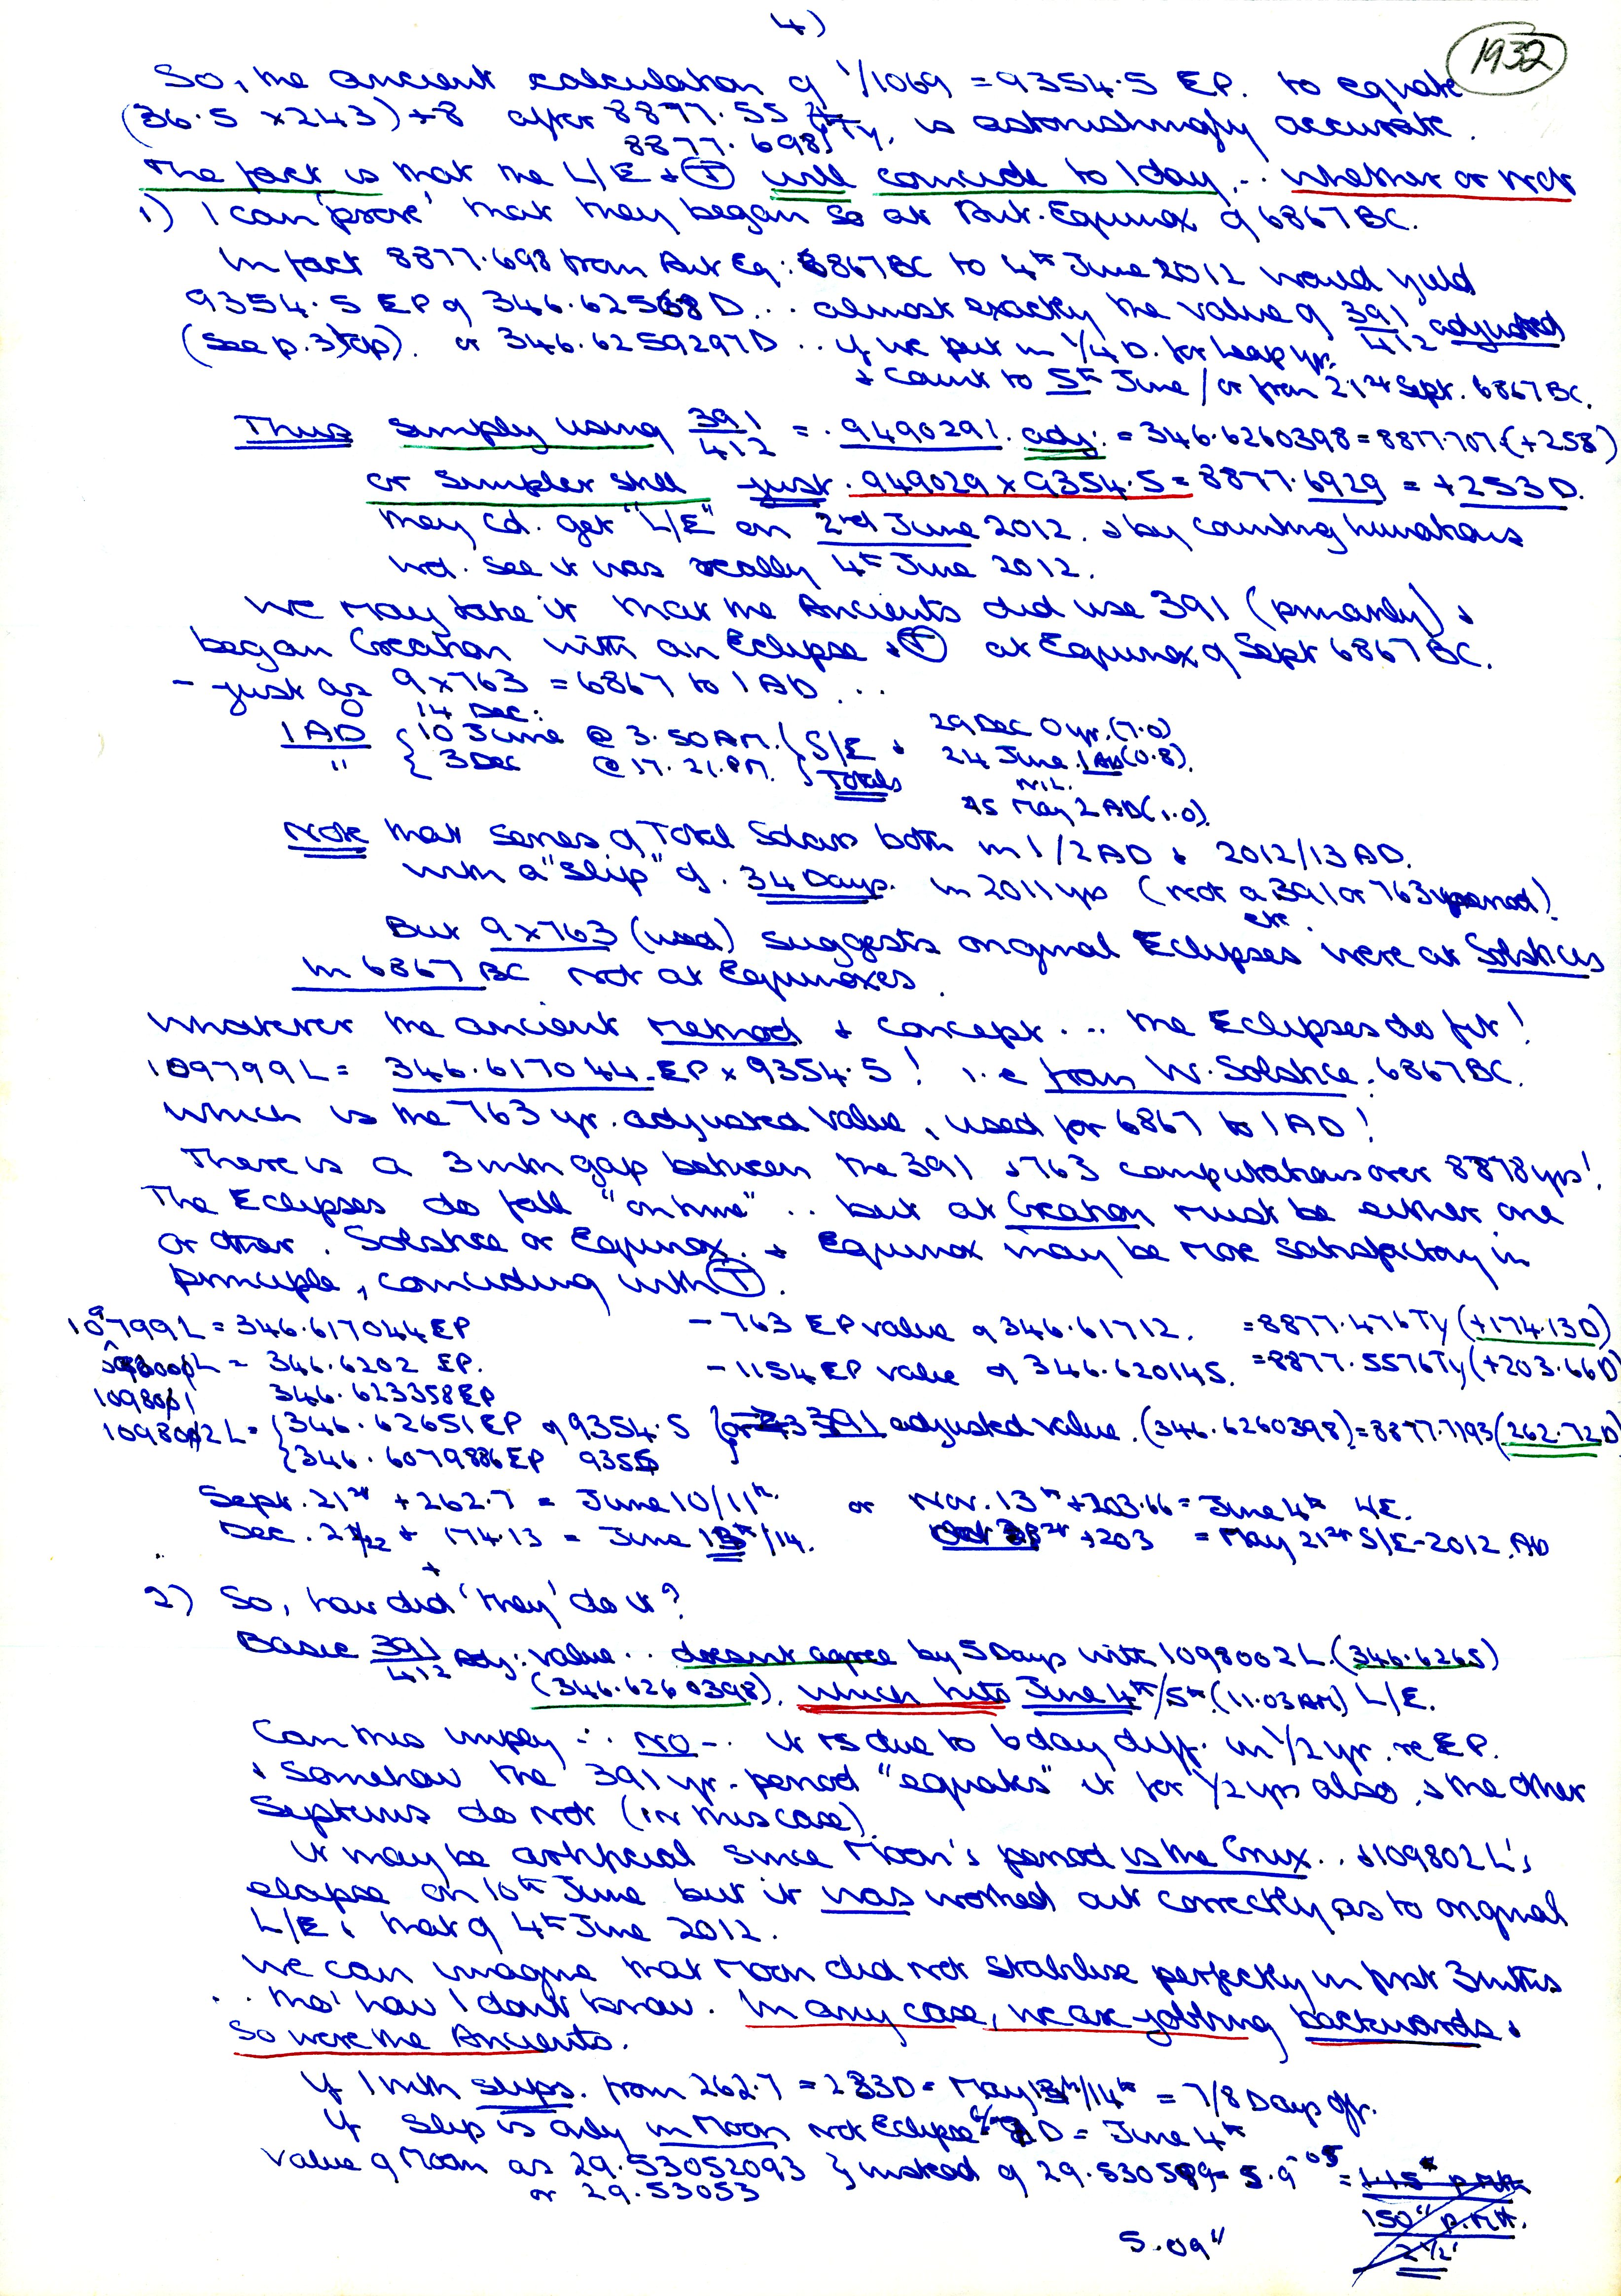 4)
1932
So, the ancient calculation of 1/1069 = 9354.5 EP. to equate
(36.5 x 243) + 8 after 8877.55 Ty. is astonishingly accurate.
8877.698
The fact is that the L/E + (T) will coincide to 1 day, .. whether or not
1) I can 'prove' that they began so at Aut. Equinox of 6867 BC.
In fact 8877.698 from Aut Eq: 6867 BC to 4th June 2012 would yield
9354.5 EP of 346.62568 D... almost exactly the value of 391/412 adjusted
(see p.3 top). or 346.6259297D .. if we put in 1/4 D. for leap yr.
+ count to 5th June / or from 21st Sept. 6867 BC.
Thus simply using 391/412 = .9490291. adj: = 346.6260398 = 8877.707 (+258)
or simpler still just .949029 x 9354.5 = 8877.6929 = +253D.
They cd. get "L/E" on 2nd June 2012. & by counting lunations
wd. see it was really 4th June 2012.
We may take it that the Ancients did use 391 (primarily) &
began Creation with an Eclipse + (T) at Equinox of Sept 6867 BC.
- just as 9 x 763 = 6867 to 1 AD ...
0 14 Dec:
1 AD { 10 June @ 3.50 AM. } S/E + 29 Dec 0 yr. (7.0)
" { 3 Dec @ 17.21. PM. } Totals 24 June 1 AD (0.8).
NIL.
15 May 2 AD (1.0).
Note that series of Total Solars both in 1/2 AD & 2012/13 AD.
with a "slip" of 34 Days in 2011 yrs (not a 391 or 763 yr period).
etc.
But 9 x 763 (used) suggests original Eclipses were at Solstices
in 6867 BC not at Equinoxes.
Whatever the ancient method & concept ... the Eclipses do fit!
109799 L = 346.617044 EP x 9354.5! i.e from W. Solstice. 6867 BC.
which is the 763 yr. adjusted value, used for 6867 to 1 AD!
There is a 3 mth gap between the 391 & 763 computations over 8878 yrs!
The Eclipses do fall "on time" .. but at Creation must be either one
or other. Solstice or Equinox. & Equinox may be more satisfactory in
principle, coinciding with (T).
109799 L = 346.617044 EP - 763 EP value of 346.61712. = 8877.476 Ty (+174.13D)
L = 346.6202 EP. - 1154 EP value of 346.620145. = 8877.5576 Ty (+203.66D)
109801 346.623358 EP
109802 L = { 346.62651 EP of 9354.5 } or 391 adjusted value. (346.6260398) = 8877.7193 (262.72D)
{ 346.6079886 EP 9355
Sept. 21st + 262.7 = June 10/11th. or Nov. 13th + 203.66 = June 4th L/E.
Dec. 21/22 + 174.13 = June 13th/14. +203 = May 21st S/E - 2012. AD
2) So, how did 'they' do it?
Basic 391/412 Adj: value .. doesnt agree by 5 Days with 1098002 L. (346.6265)
(346.6260398), which hits June 4th/5th. (11.03 AM) L/E.
Can this imply ∴ NO -. it is due to 6 day diff. in 1/2 yr. re EP.
+ Somehow the 391 yr. period "equates" it for 1/2 yrs also, & the other
Systems do not (in this case).
It may be artificial since Moon's period is the Crux .. & 109802 L's
elapse on 10th June but it was worked out correctly as to original
L/E, that of 4th June 2012.
We can imagine that Moon did not stabilise perfectly in first 3 mths
.. tho' how I dont know. In any case, we are jobbing backwards &
So were the Ancients.
If 1 mth slips. from 262.7 = 233D = May 13th/14th = 7/8 Days off.
If slip is only in Moon not Eclipse D = June 4th
Value of Moon as 29.53052093 } instead of 29.530589 = 5.9 -05 =
or 29.53053
150" p.Mth.
2 1/2'
5.09"